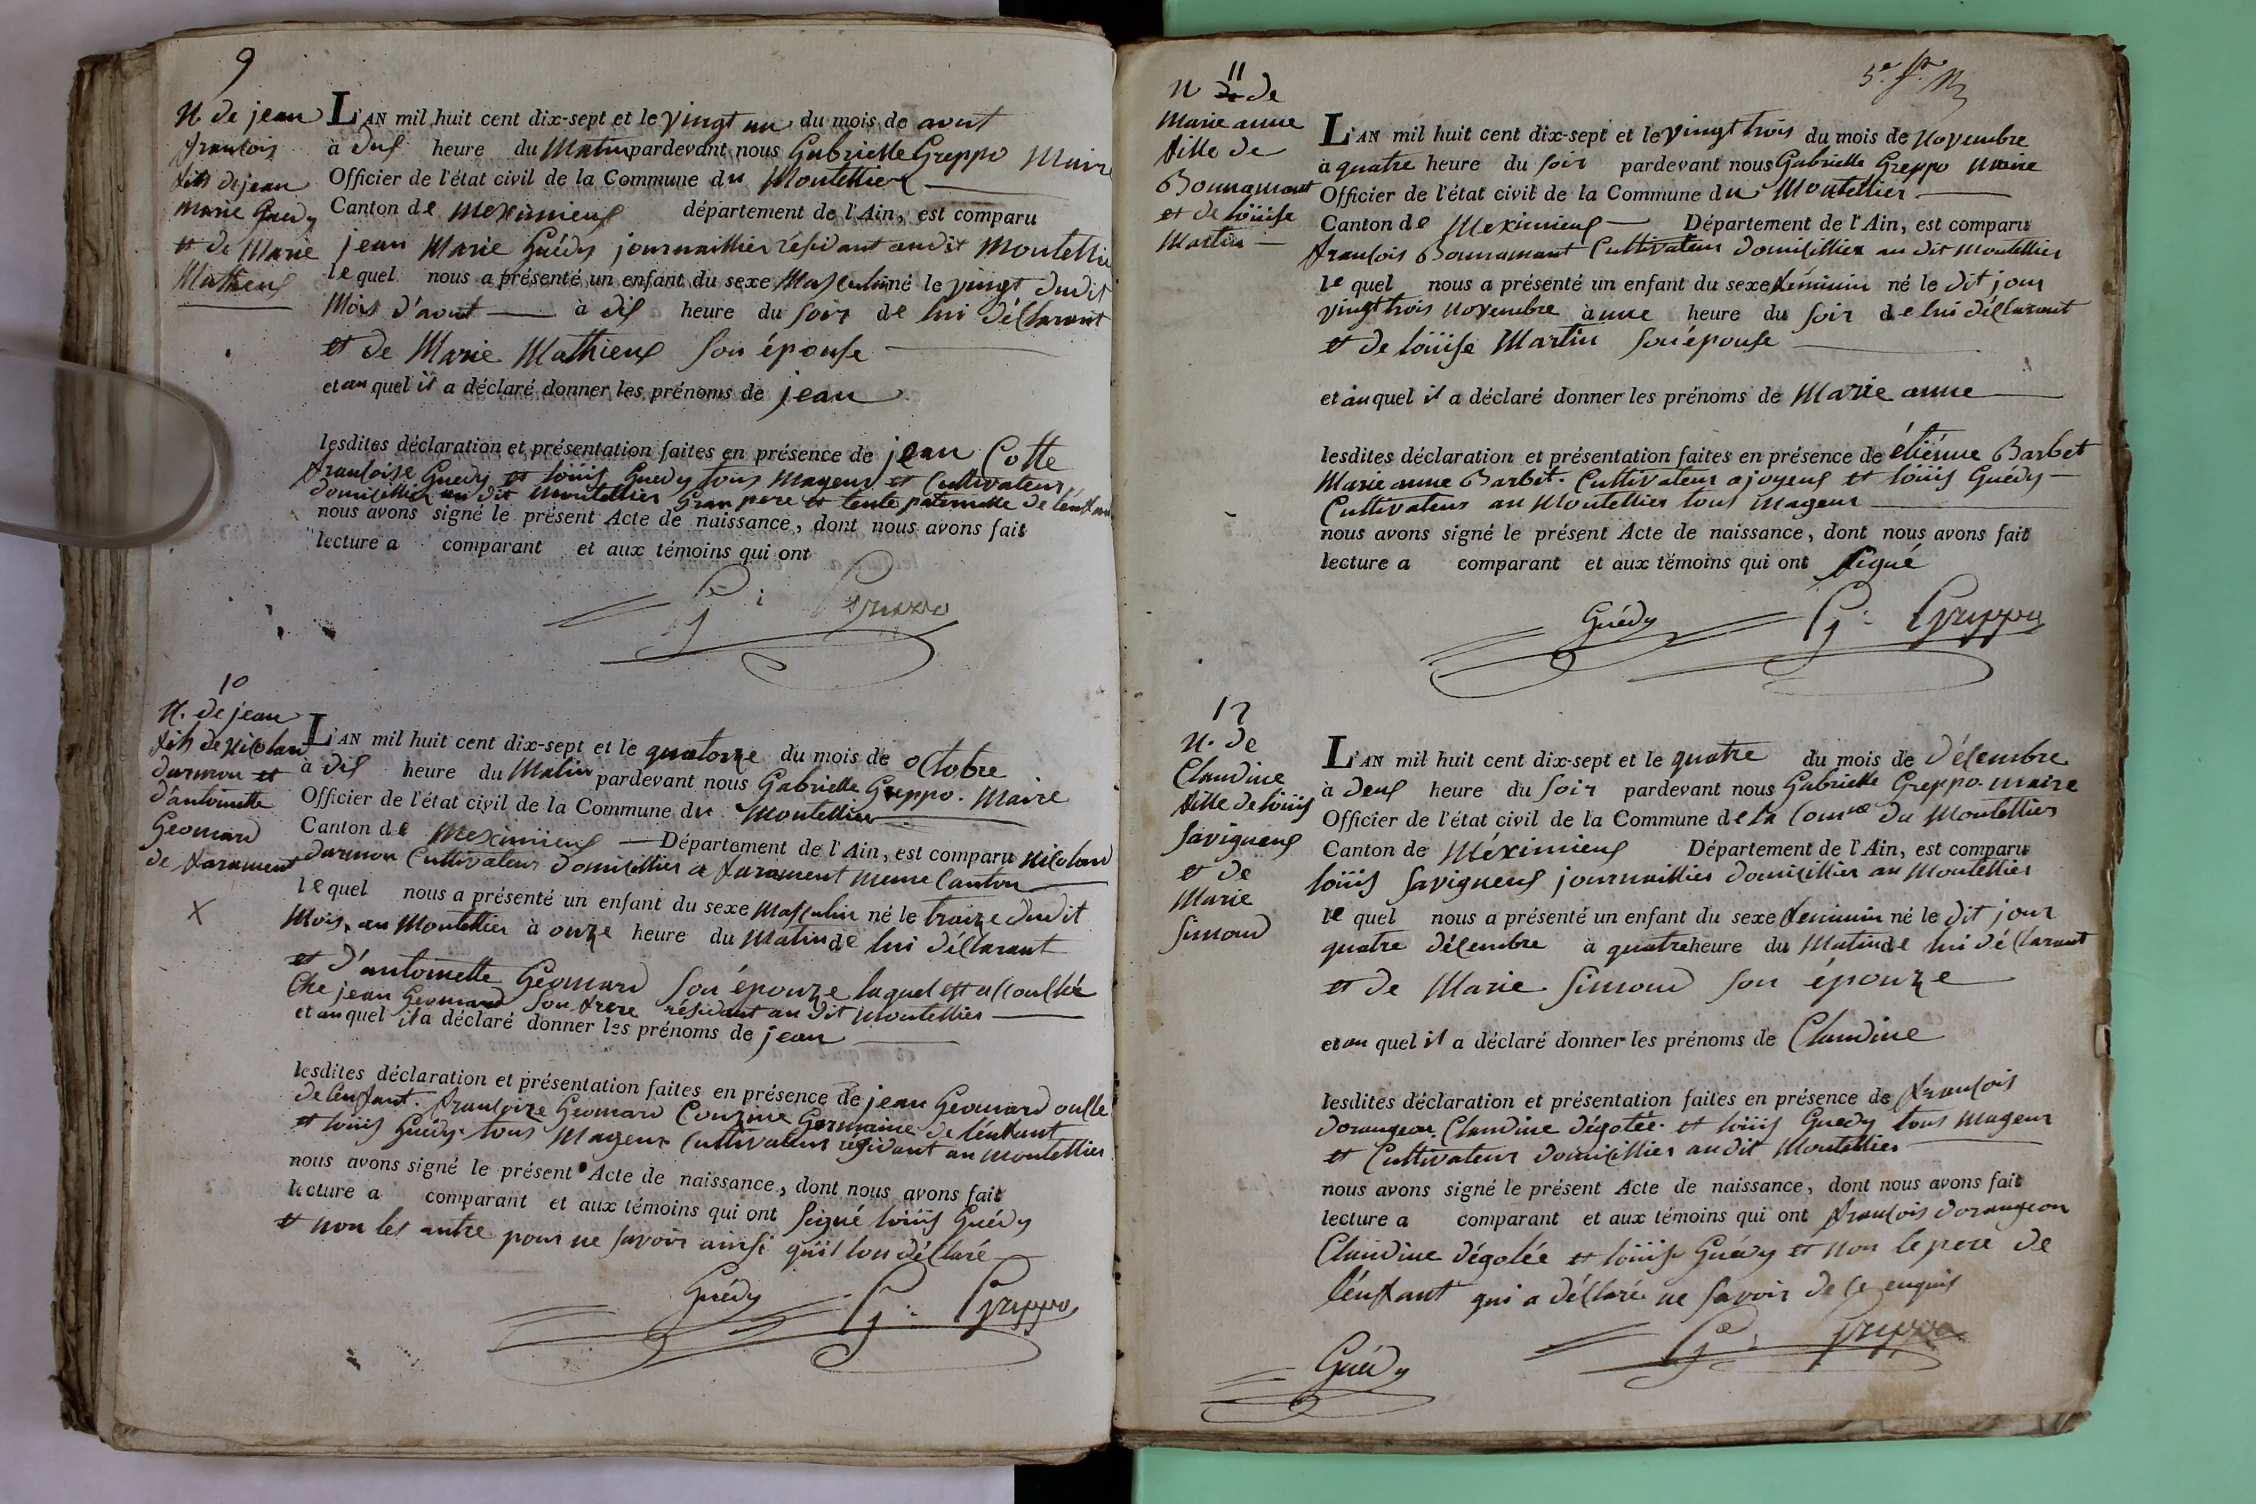 9
N de jean
fransois
fils de jean
marie Guédy
et de Marie
Mathieux
L'AN mil huit cent dix-sept et le vingt un du mois de avut
à dix heure du Matin pardevant nous Gabrielle Greppo Maire
Officier de l'état civil de la Commune du Montellier
Canton de meximieux département de l'Ain, est comparu
jean Marie Guédy journaillier résidant audit Montellie
lequel nous a présenté un enfant du sexe Masculin né le vingt dudit
Mois d'avut à dix heure du soir de lui déclarant
et de Marie Mathieux son épouse
et au quel il a déclaré donner les prénoms de jean
lesdites déclaration et présentation faites en présence de jean Cotte
fransoise Guedy et loüis Guedy tous mageur et Cultivateur
domicillier au dit montellier Gran pere et tente paternelle de lénfan
nous avons signé le présent Acte de naissance, dont nous avons fait
lecture a comparant et aux témoins qui ont
G: Greppo
10
N. de jean
fils de nicolau
darmon et
d'antoinette
Geomard
de farament
X
L'AN mil huit cent dix-sept et le quatorze du mois de octobre
à dix heure du Matin pardevant nous Gabrielle Greppo. Maire
Officier de l'état civil de la Commune du Montellier
Canton de meximieux Département de l'Ain, est comparu nicolau
darmon Cultivateur domicillier a farament meme Canton
lequel nous a présenté un enfant du sexe masculin né le traize dudit
Mois au Montellier à onze heure du Matin de lui déclarant
et d'antoinette Géomard son épouze laquel est acouchée
Che jean Geomard son frere résidant au dit Montellier
et au quel il a déclaré donner les prénoms de jean
lesdites déclaration et présentation faites en présence de jean Geomard oncle
de lenfant. fransoize Geomard Couzine Germaine de lénfant
et loüis Guédy tous mageur Cultivateur résidant au montellier
nous avons signé le présent Acte de naissance, dont nous avons fait
lecture a comparant et aux témoins qui ont signé loüis Guédy
et non les autre pour ne savoir ainsi quïl lon déclaré
Guédy G: Greppo
11
N de
Marie anne
fille de
Bonnamant
et de loüise
Martin
L'AN mil huit cent dix-sept et le vingt trois du mois de novembre
à quatre heure du soir pardevant nous Gabrielle Greppo maire
Officier de l'état civil de la Commune du Montellier
Canton de Meximieux Département de l'Ain, est comparu
fransois Bonnamant Cultivateur domicillier au dit montellier
lequel nous a présenté un enfant du sexe féminin né le dit jour
vingt trois novembre à une heure du soir de lui déclarant
et de loüise Martin son épouse
et au quel il a déclaré donner les prénoms de Marie anne
lesdites déclaration et présentation faites en présence de étiénne Barbet
Marie anne Barbet. Cultivateur a joyeux et loüis Guédy
Cultivateur au Montellier tous mageur
nous avons signé le présent Acte de naissance, dont nous avons fait
lecture a comparant et aux témoins qui ont signé
Guédy G: Greppo
12
N. de
Claudine
fille de loüis
savigneux
et de
Marie
simond
L'AN mil huit cent dix-sept et le quatre du mois de décembre
à deux heure du soir pardevant nous Gabrielle Greppo. maire
Officier de l'état civil de la Commune de la Comne du Montellier
Canton de Méximieux Département de l'Ain, est comparu
loüis savigneux journaillier domicillier au Montellier
lequel nous a présenté un enfant du sexe feminin né le dit jour
quatre décembre à quatre heure du Matin de lui déclarant
et de Marie simond son épouze
et au quel il a déclaré donner les prénoms de Claudine
lesdites déclaration et présentation faites en présence de fransois
dorangeon. Claudine dégolée. et loüis Guedy tous mageur
et Cultivateur domicillier audit Montellier
nous avons signé le présent Acte de naissance, dont nous avons fait
lecture a comparant et aux témoins qui ont fransois dorangeon
Claudine dégolée et loüis Guédy et non le pere de
lénfant qui a déclaré ne savoir de ce enquis
Guédy G: Greppo